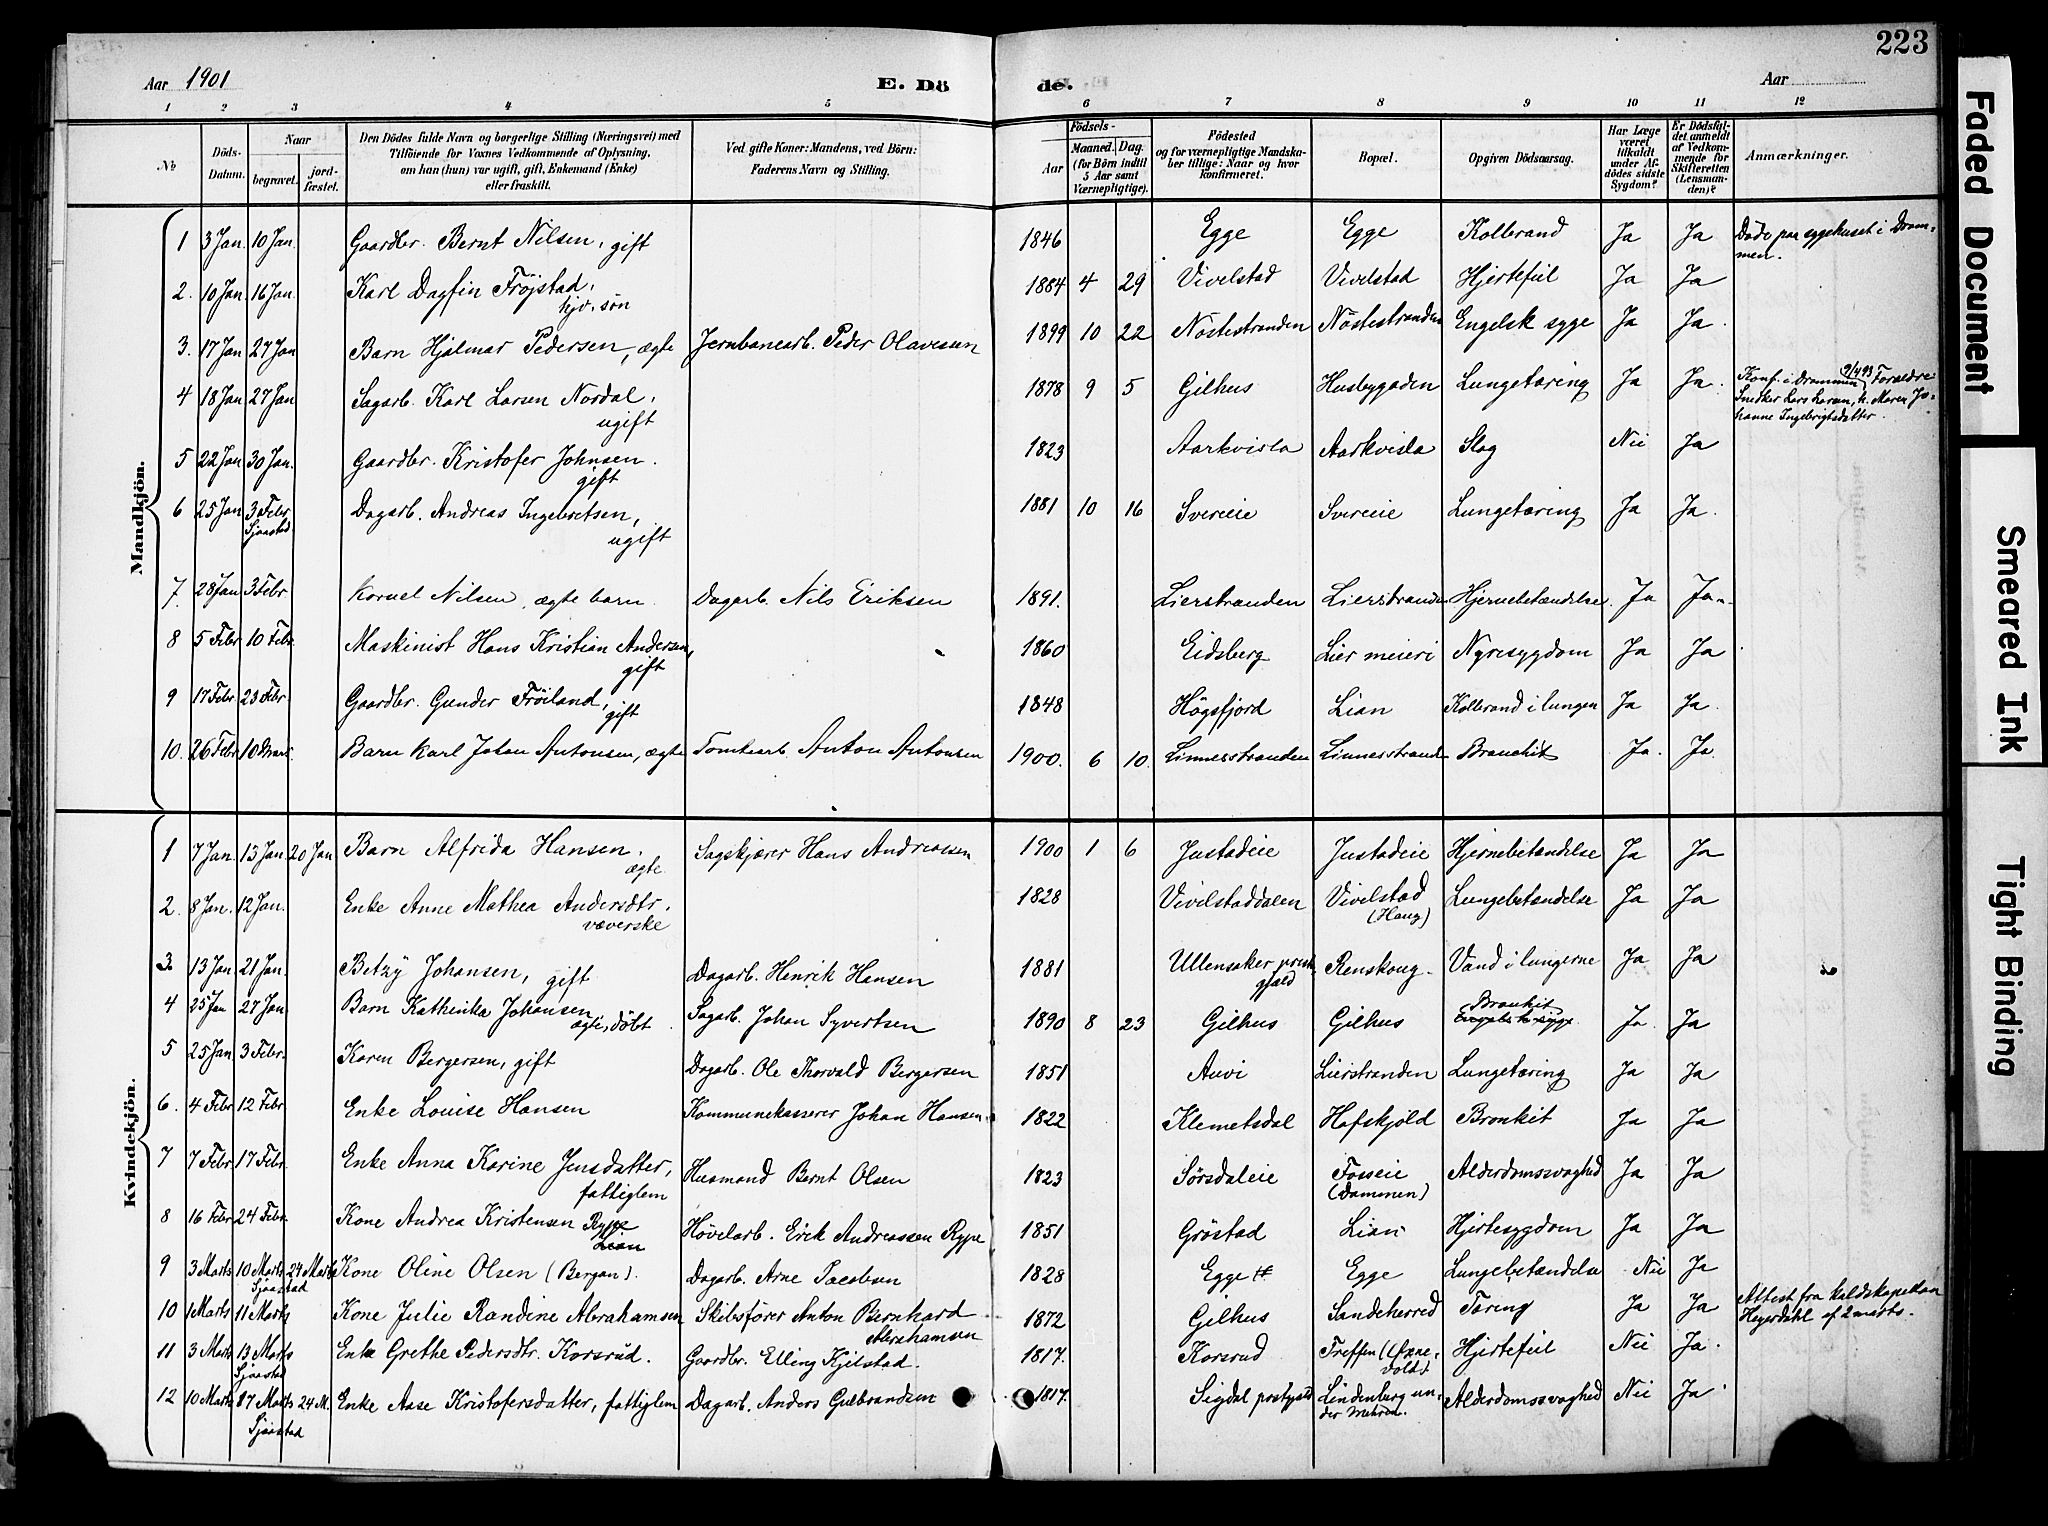 223
Aar 1901
E. Dö
de.
Aar
1 2 3 4 5 6 7 8 9 10 11 12
No
Döds-Datum.
Naar
begravet.
jord-fæstet.
Den Dödes fulde Navn og borgerlige Stilling (Næringsvei) med
Tilföiende for Voxnes Vedkommende af Oplysning,
om han (hun) var ugift, gift, Enkemand (Enke)
eller fraskilt.
Ved gifte Koner: Mandens, ved Börn:
Faderens Navn og Stilling.
Födsels-
Aar
Maaned. Dag.
(for Börn indtil
5 Aar samt
Værnepligtige).
Födested
og for værnepligtige Mandska-
ber tillige: Naar og hvor
konfirmeret.
Bopæl.
Opgiven Dödsaarsag.
Har Læge
været
tilkaldt
under Af-
dödes sidste
Sygdom?
Er Dödsfal-
det anmeldt
af Vedkom-
mende for
Skifteretten
(Lensman-
den)?
Anmærkninger.
Mandkjön.
1 3 Jan 10 Jan. Gaardbr. Bernt Nilsen, gift 1846 Egge Egge Kolbrand Ja Ja Døde paa sygehuset i Dram-
men.
2. 10 Jan 16 Jan. Karl Dagfin Frøjstad, 1884 4 29 Vivelstad Vivelstad Hjertefeil Ja Ja
hjv. søn
3. 17 Jan 27 Jan Barn Hjalmar Pedersen, ægte Jernbanearb. Peder Olavesen 1899 10 22 Nøstestranden Nøstestranden Engelsk syge Ja Ja.
4 18 Jan 27 Jan Sagarb. Karl Larsen Nordal, 1878 9 5 Gilhus Husbygaden Lungetæring Ja Ja. Konf. i Drammen Forældre:
ugift Snedker Lars Larsen, h. Maren Jo-
hanne Ingebrigtsdatter.
5 22 Jan 30 Jan. Gaardbr. Kristofer Johnsen. 1823 Aarkvisla Aarkvisla Slag Nei Ja
gift
6 25 Jan 3 Febr Dagarb. Andreas Ingebretsen, 1881 10 16 Svereie Svereie Lungetæring Ja Ja.
Sjaastad ugift
7. 28 Jan 3 Febr. Kornel Nilsen, ægte barn. Dagarb. Nils Eriksen 1891. Lierstranden Lierstranden Hjernebetændelse. Ja Ja
8 5 Febr 10 Febr. Maskinist Hans Kristian Andersen, 1860 Eidsberg Lier meieri Nyresygdom Ja Ja
gift
9 17 Febr 23 Febr. Gaardbr. Gunder Frøiland, gift 1848 Høgsfjord Lian Kolbrand i lungen Ja Ja.
10. 26 Febr 10 Mars. Barn Karl Johan Antonsen, ægte Tomtearb. Anton Antonsen 1900. 6 10. Linnesstranden Linnesstranden Bronchit Ja. Ja.
Kvindekjön.
1 7 Jan. 13 Jan. 20 Jan Barn Alfrida Hansen. Sagskjærer Hans Andreassen 1900 1 6 Justadeie Justadeie Hjernebetændelse Ja Ja
ægte
2. 8 Jan. 12 Jan. Enke Anne Mathea Andersdtr. 1828 Vivelstaddalen Vivelstad Lungebetændelse Ja Ja
væverske (Haug)
3. 13 Jan 21 Jan. Betzy Johansen, gift Dagarb. Henrik Hansen 1881 Ullensaker prest- Renskoug. Vand i lungerne Ja Ja
gjæld
4 25 Jan 27 Jan. Barn Kathinka Johansen Sagarb. Johan Syvertsen 1890 8 23 Gilhus Gilhus Bronkit Ja. Ja
ægte, døbt Engelsk syge
5 25 Jan 3 Febr. Karen Bergersen, gift Dagarb. Ole Thorvald Bergersen 1851 Auvi Lierstranden Lungetæring Ja Ja
6. 4 Febr 12 Febr Enke Louise Hansen Kommunekasserer Johan Hansen. 1822 Klemetsdal Hafskjold Bronkit Ja Ja
7 7 Febr 17 Febr. Enke Anna Karine Jensdatter, Husmand Bernt Olsen 1823 Sørsdaleie Fosseie Alderdomssvaghed Ja Ja
fattiglem (Dammen)
8 16 Febr 24 Febr. Kone Andrea Kristensen Rype Høvelarb. Erik Andreassen Rype 1851 Grøstad Lian Hjertesygdom Ja Ja
Lian
9 3 Marts 10 Marts 24 Marts Kone Oline Olsen (Bergan). Dagarb. Arne Jacobsen 1828 Egge Egge Lungebetændelse Nei Ja
Sjaastad
10 1 Marts 11 Marts Kone Julie Randine Abrahamsen Skibsfører Anton Bernhard 1872 Gilhus Sandeherred Tæring Ja Ja Attest fra
Abrahamsen Hegerdahl af 2 marts.
11 3 Marts 13 Marts Enke Grethe Pedersdtr. Korsrud. Gaardbr. Elling Kjilstad. 1817. Korsrud Treffen Hjertefeil Nei Ja.
Sjaastad
12 10 Marts 17 Marts 24 M. Enke Aase Kristofersdatter, fattiglem Dagarb. Anders Gulbrandsen 1817. Sigdal prestgjeld Lindenburg un- Alderdomssvaghed Nei Ja
Sjaastad der Mehren.
Faded Document
Smeared Ink
Tight Binding